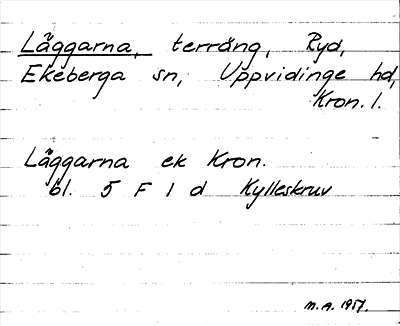 Läggarna, terräng, Ryd,
Ekeberga sn, Uppvidinge hd,
Kron. l.
Läggarna ek Kron.
bl. 5 F 1 d Kylleskruv
M.A. 1957.